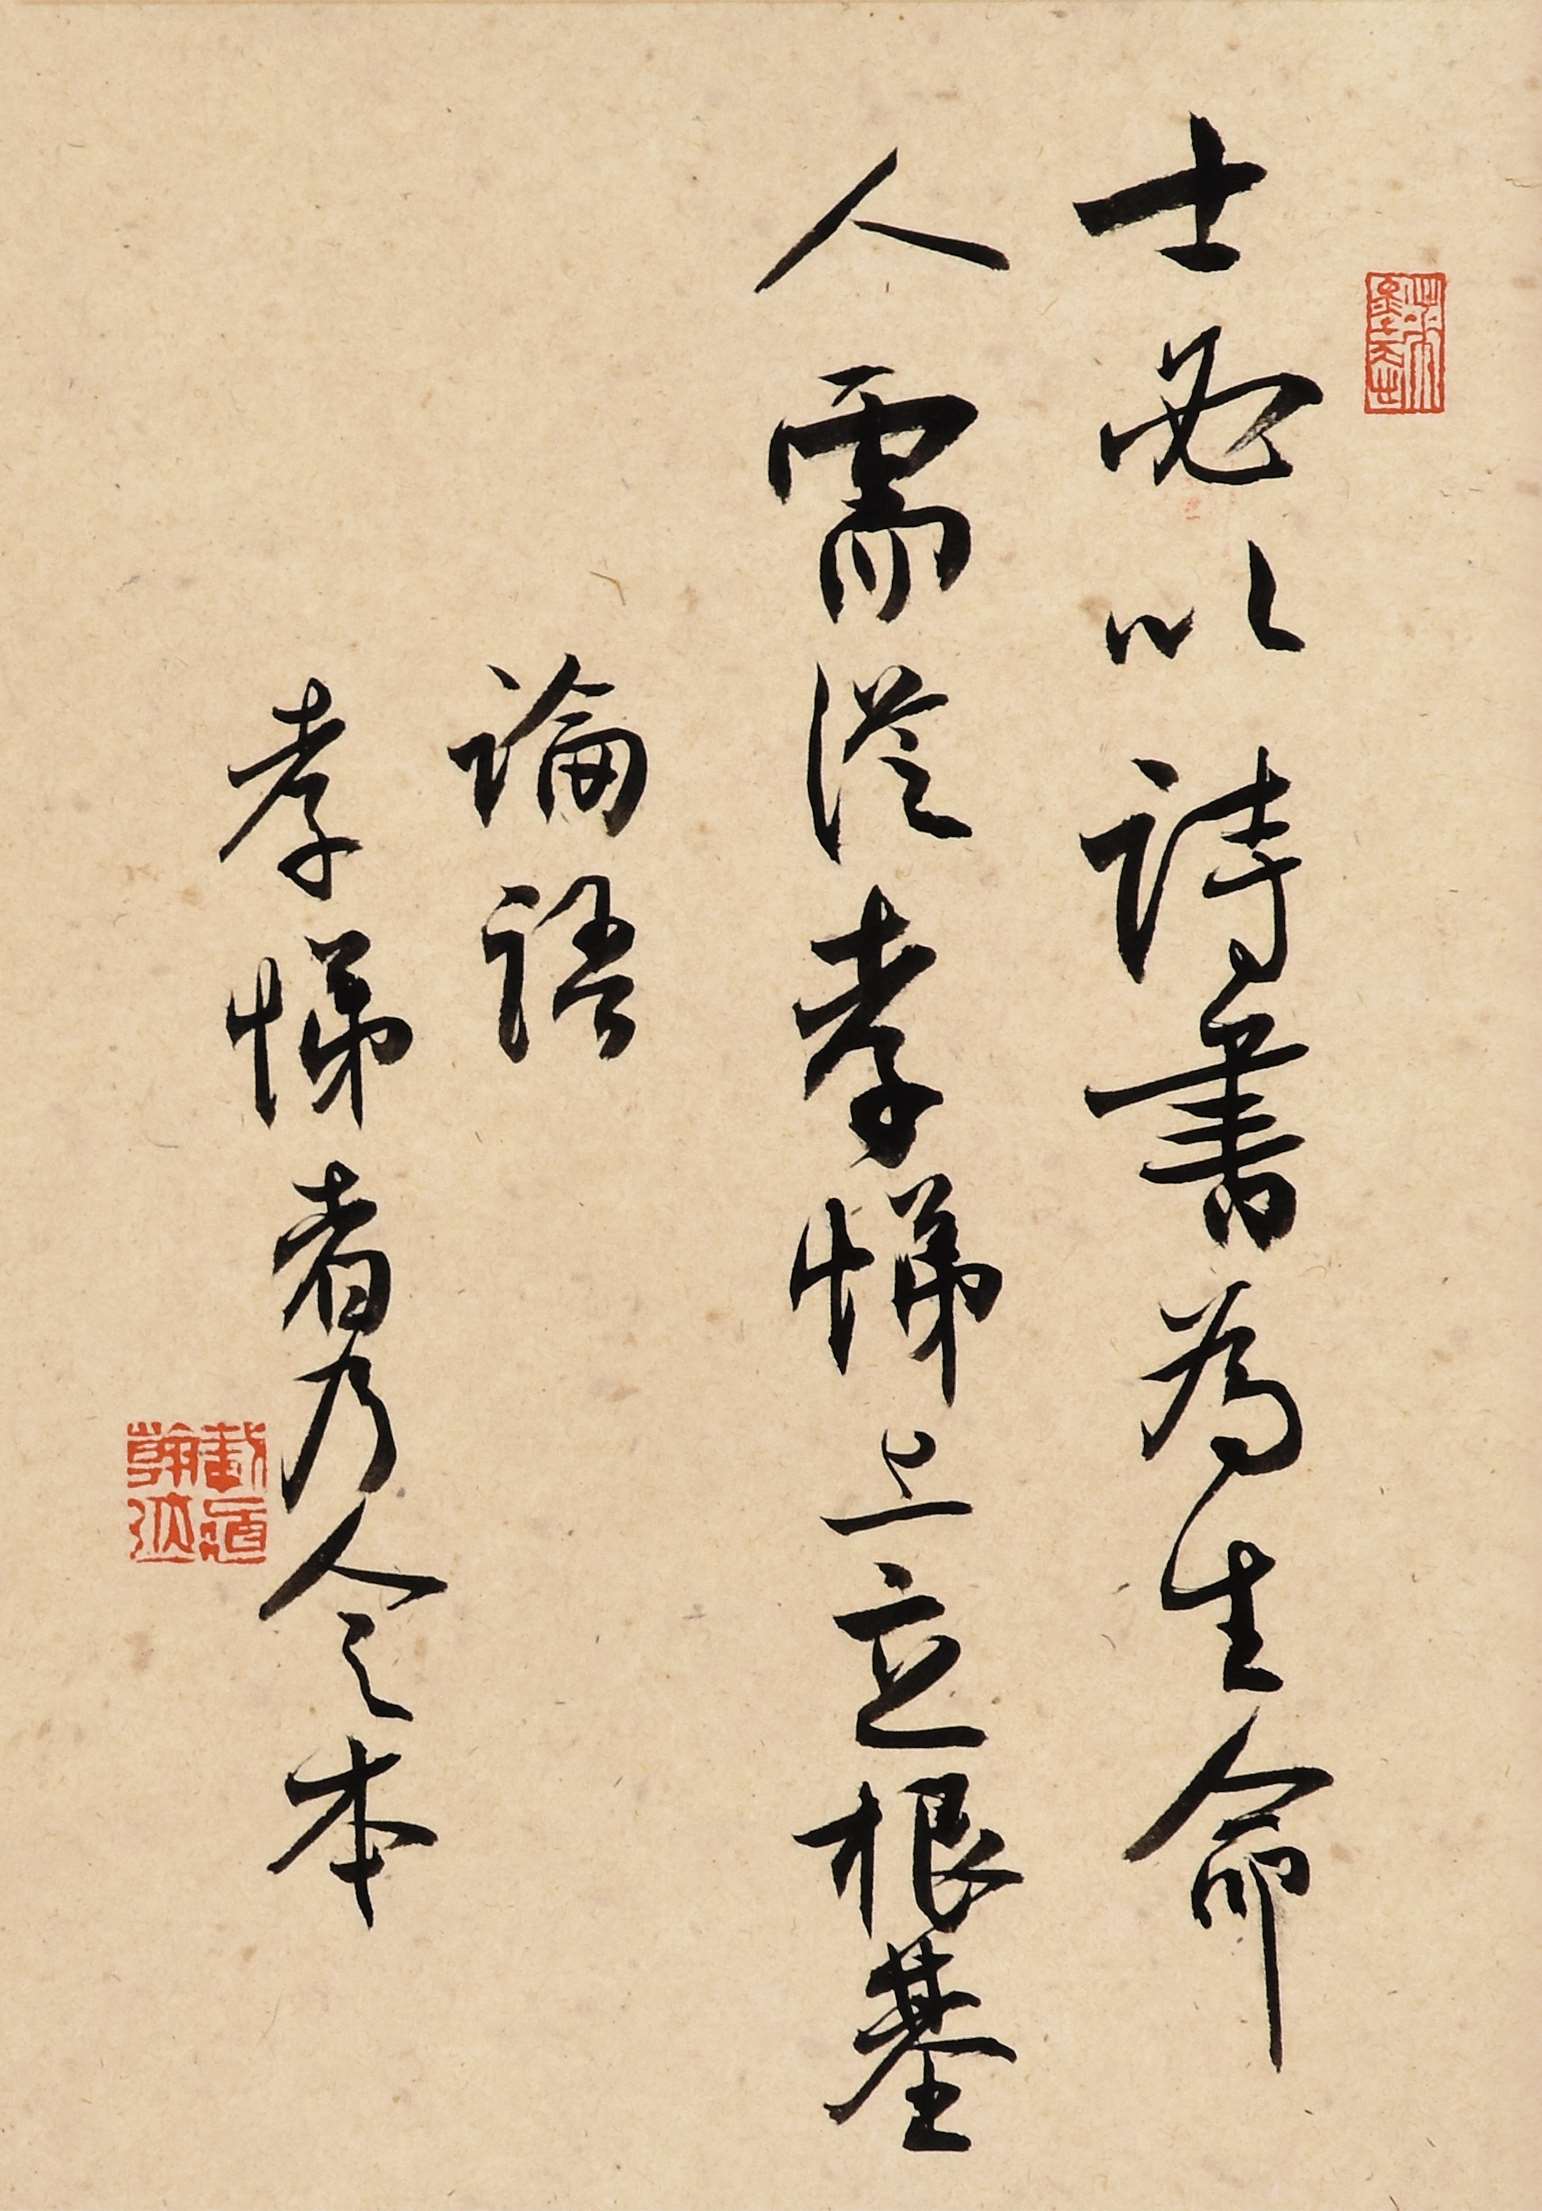 士必以詩書為生命
人需從孝悌上立根基
論語
孝悌者乃人之本